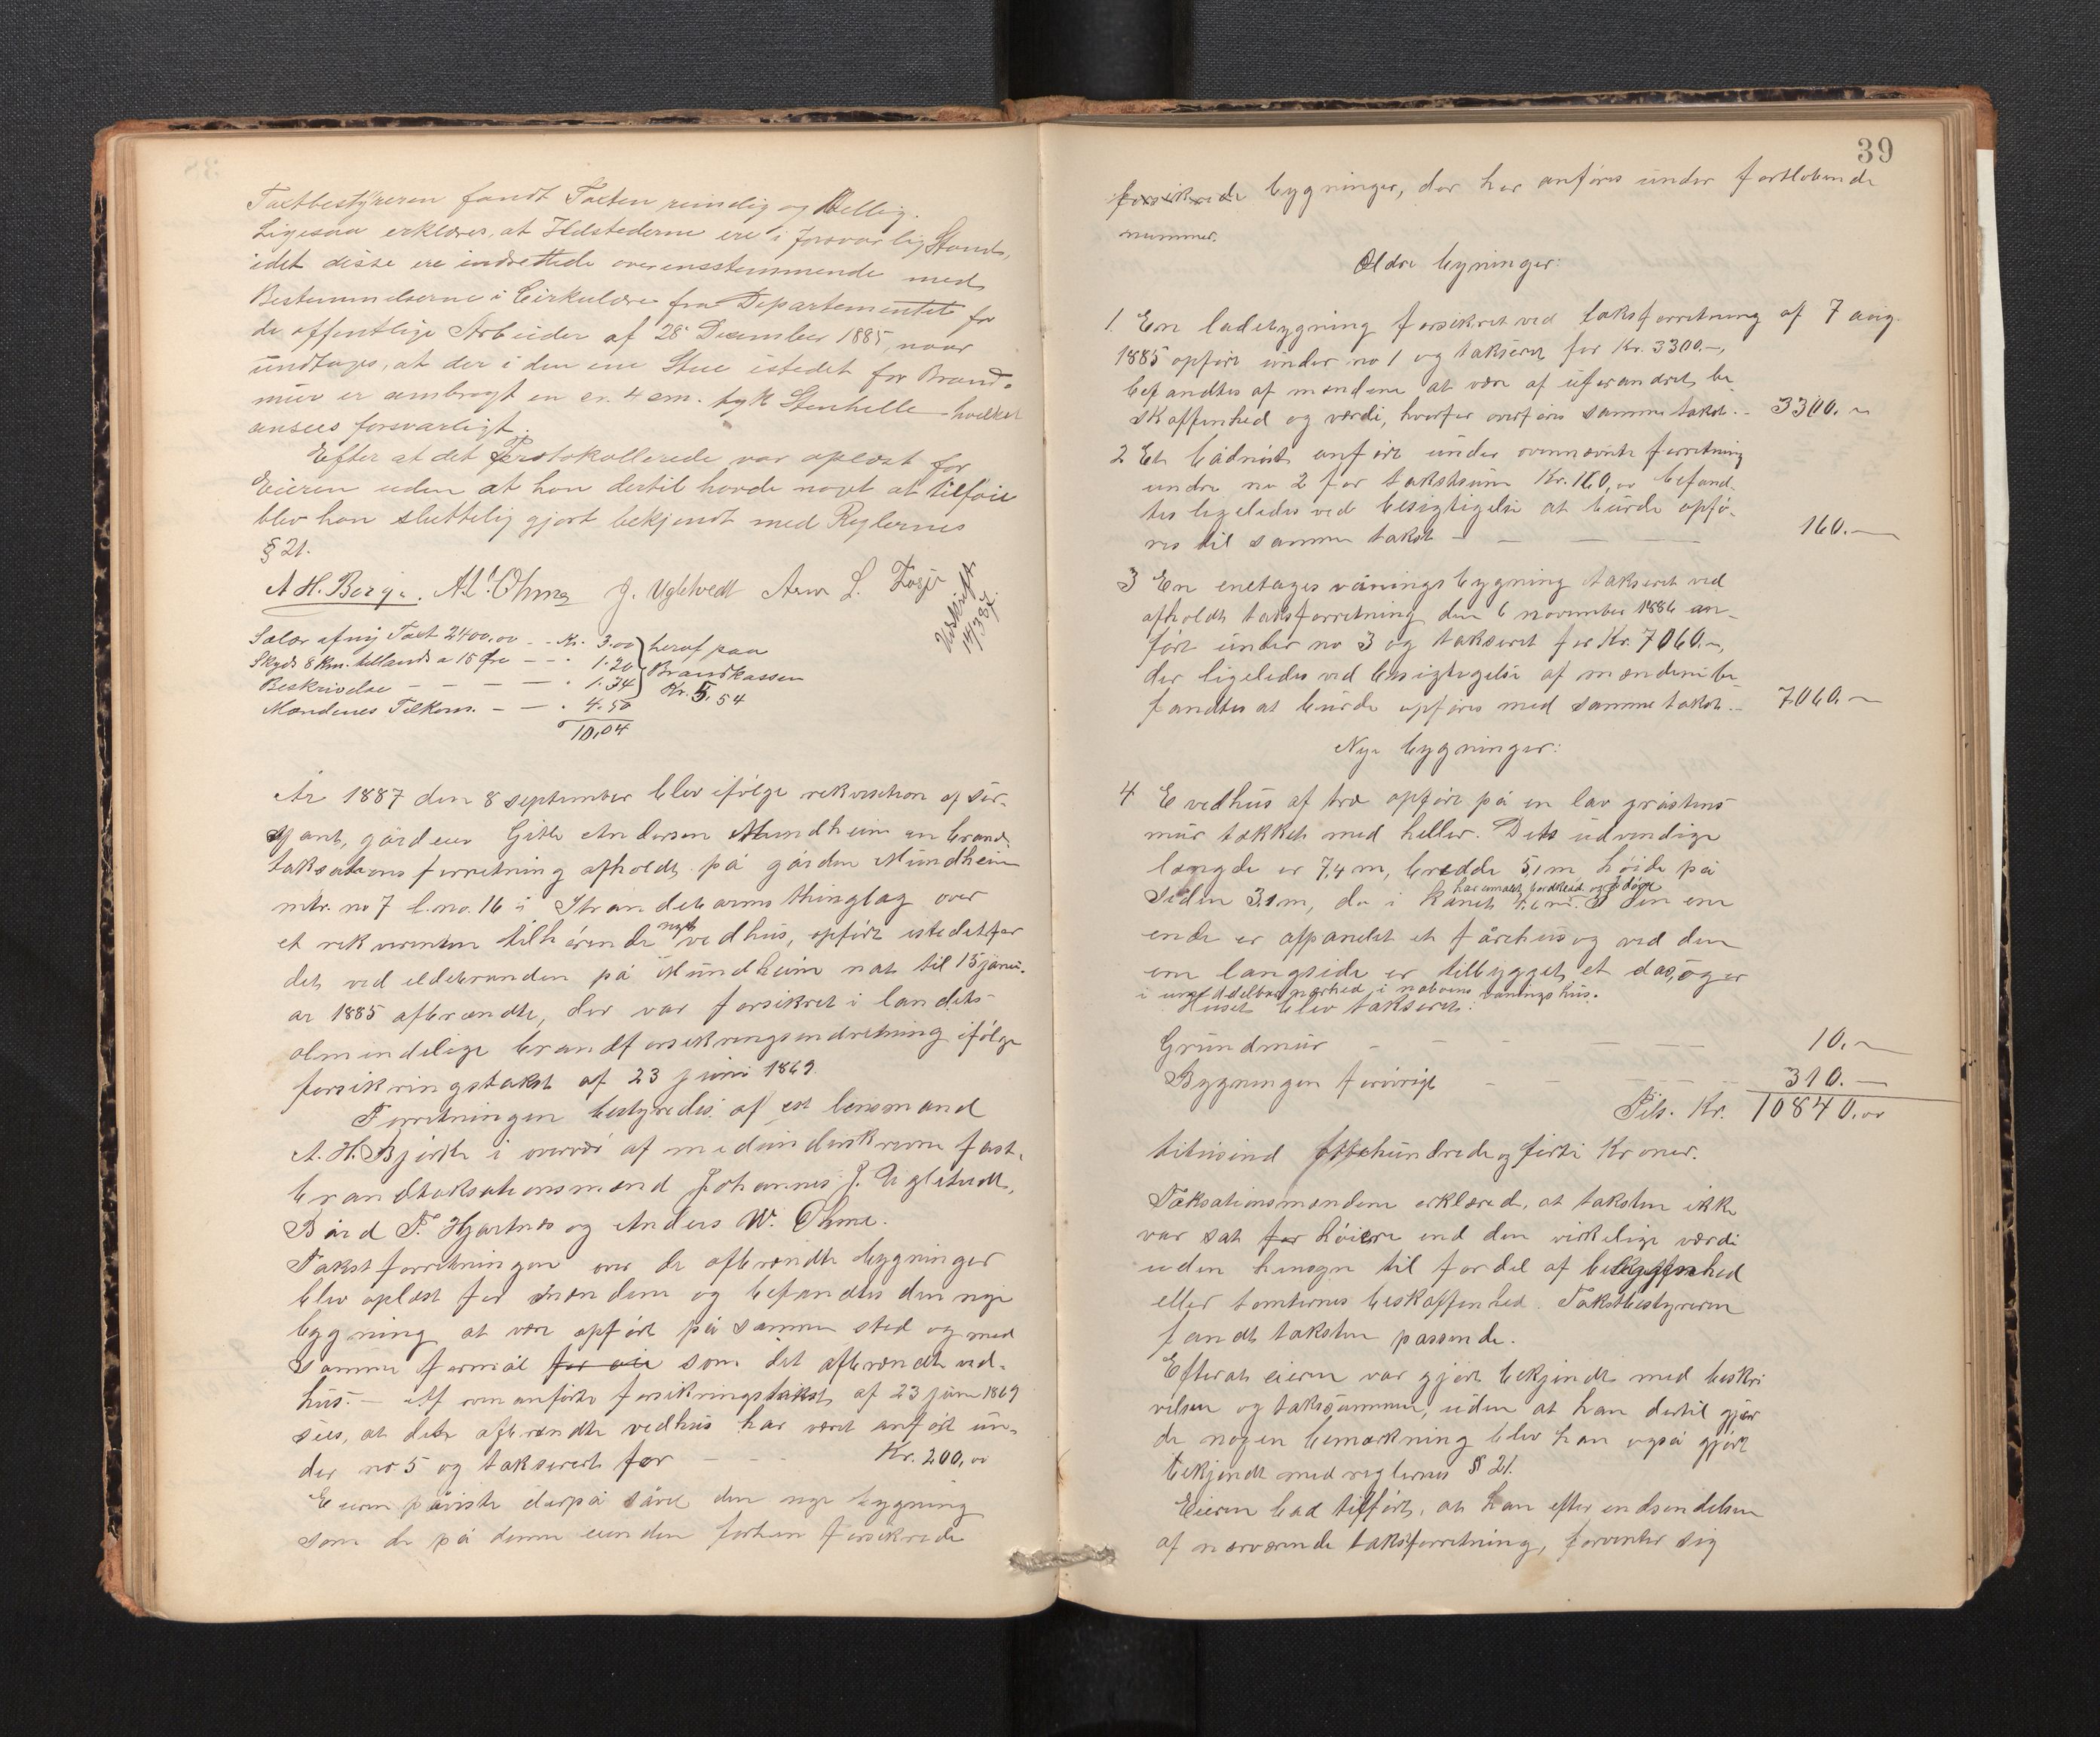 Taxtbestyreren fandt Taxten rimelig og billig.
Ligesaa erklæres, at Ildstederne ere i forsvarlig Stand,
idet disse ere indrettede overensstemmende med
Bestemmelserne i Cirkulære fra Departementet for
de offentlige Arbeider af 28de December 1885, naar
undtages, at der i den ene Stue istedet for Brand-
mur er anbragt en cr. 4 cm. tyk Stenhelle hvilket
ansees forsvarligt.
Efter at det Protokollerede var oplæst for
Eieren uden at han dertil havde noget at tilføie
blev han sluttelig gjort bekjendt med Reglernes
§ 21.
A H. Berge. A. Ohma J. Ugletvedt L.
Udskrift
14/3 87.
Salær af ny Taxt 2400,00 - - Kr. 3.00 heraf paa
Skyds 8 Km. tillands a 15 Øre - - " 1.20 Brandkassen
Beskrivelse - - - - " 1.34 Kr. 5,54
Mændenes Tilkom. - - " 4.50
10,04
År 1887 den 8 september blev ifølge rekvisition af ser-
sjant, gårdeier Gitle Andersen Mundheim en brand-
taksationsforretning afholdt på gården Mundheim
mtr. no 7 l. no. 16 i Strandebarms thinglag over
et rekvirenten tilhørende nyt vedhus, opført istedetfor
det ved ildebranden på Mundheim nat til 15 janu-
ar 1885 afbrændte, der var forsikret i landets
almindelige brandforsikringsindretning ifølge
forsikringstakst af 23 juni 1869.
Forretningen bestyredes af lensmand
A. H. Bjørke i overvær af medunderskrevne fast.
brandtaksationsmænd Johannes J. Ugletvedt,
Bård T. Hjartnes og Anders W. Ohma.
Takstforretningen over de afbrændte bygninger
blev oplæst for mændene og befandtes den nye
bygning at være opført på samme sted og med
samme formål som det afbrændte ved-
hus. - Af ovenanførte forsikringstakst af 23 juni 1869
sees, at dette afbrændte vedhus har været anført un-
der no 5 og takseret for - - - Kr. 200,00
Eieren påviste derpå såvel den nye bygning
som de på denne eiendom forhen forsikrede
39
forsikrede bygninger, der her anføres under fortløbende
nummer.
Ældre bygninger:
1. En ladebygning forsikret ved taksforretning af 7 aug.
1885 opført under no 1 og takseret for Kr. 3300.-,
befandtes af mændene at være af uforandret be-
skaffenhed og værdi, hvorfor overføres samme takst. - 3300.-
2 Et bådnøst anført under ovennævnte forretning
under no 2 for takstsum Kr. 160,00 befand-
tes ligeledes ved besigtigelse at burde opfø-
res til samme takst - - - - 160.-
3 En enetages våningsbygning takseret ved
afholdt taksforretning den 6 november 1886 an-
ført under no 3 og takseret for Kr. 7060.-,
der ligeledes ved besigtigelse af mændene be-
fandtes at burde opføres med samme takst. - 7060.-
Nye bygninger:
4 E vedhus af træ opført på en lav gråstens-
mur tækket med heller. Dets udvendige
længde er 7,4 m, bredde 5,1 m, høide på
siden 3,1 m, den ene
ende er afpanelet et fårehus og ved den
ene langside er tilbygget et das, og er
i umiddelbar nærhed i naboens våningshus.
Huset blev takseret:
Grundmur - - - - - 10.-
Bygningen forøvrigt - - - - 310.-
Tils. Kr. 10840.00
titusind ottehundrede og førti Kroner.
Taksationsmændene erklærede, at taksten ikke
var sat for høiere end den virkelige værdi
uden hensyn til fordel af beliggenhed
eller tomternes beskaffenhed. Takstbestyreren
fandt taksten passende.
Efterat eieren var gjort bekjendt med beskri
velsen og takssummen, uden at han dertil gjor
de nogen bemærkning blev han også gjort
bekjendt med reglernes § 21.
Eieren bad tilført, at han efter indsendelsen
af nærværende taksforretning, forventer sig